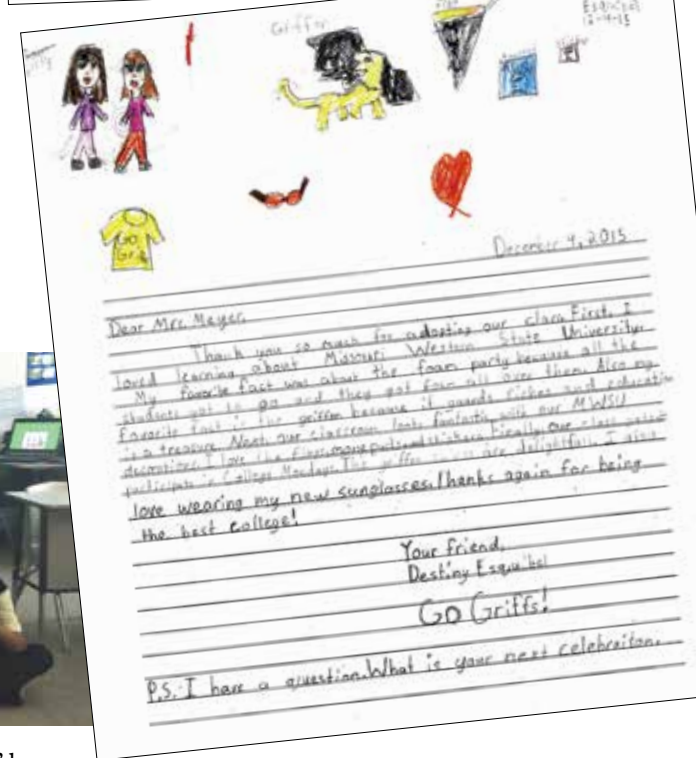 Griffon
Esquibel
12-4-15
Go
Grif
December 4, 2015
Dear Mrs. Meyer,
Thank you so much for adopting our class. First, I
loved learning about Missouri Western State University.
My favorite fact was about the foam party because all the
students got to go and they got foam all over them. Also my
favorite fact is the griffon because it guards riches and education
is a treasure. Next, our classroom looks fantastic with our MWSU
decorations. I love the flags, and stickers. Finally, our class
participate in College Mondays. The griffon are delightful. I also
love wearing my new sunglasses. Thanks again for being
the best college!
Your friend,
Destiny Esquibel
Go Griffs!
P.S. I have a question. What is your next celebraiton.